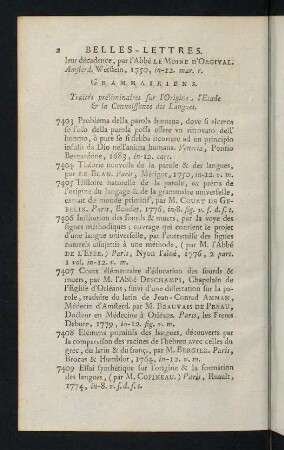 2 BELLES-LETTRES.
leur décadence, par l'Abbé LE MOINE D'ORGIVAL.
Amsterd. Wetstein, 1750, in-12. mar. r.
GRAMMAIRIENS.
Traités préliminaires sur l'Origine, l'Etude
& la Connoissance des Langues.
7403 Problema della parola humana, dove si ricerca
se l'uso della parola possa essere un ritrovato dell'
huomo, ò pure se si debba ricorrere ad un principio
infuso da Dio nell'anima humana. Venetia, Pontio
Bernardone, 1683, in-12. cart.
7404 Théorie nouvelle de la parole & des langues,
par LE BLAN. Paris, Mérigot, 1750, in-12. v. m.
7405 Histoire naturelle de la parole, ou précis de
l'origine du langage & de la grammaire universelle,
extrait du monde primitif, par M. COURT DE GE-
BELIN. Paris, Boudet, 1776, in-8. fig. v. f. d. s. t.
7406 Institution des sourds & muets, par la voye des
signes méthodiques; ouvrage qui contient le projet
d'une langue universelle, par l'entremise des signes
naturels assujettis à une méthode, (par M. l'Abbé
DE L'EPÉE) Paris, Nyon l'aîné, 1776, 2 part.
1 vol. in-12. v. m.
7407 Cours élémentaire d'éducation des sourds &
muets, par M. l'Abbé DESCHAMPS, Chapelain de
l'Eglise d'Orléans, suivi d'une dissertation sur la pa-
role, traduite du latin de Jean-Conrad AMMAN,
Médecin d'Amsterd. par M. BEAUVAIS DE PRÉAU,
Docteur en Médecine à Orléans. Paris, les Freres
Debure, 1779, in-12. fig. v. m.
7408 Elémens primitifs des langues, découverts par
la comparaison des racines de l'hébreu avec celles du
grec, du latin & du franç., par M. BERGIER. Paris,
Brocas & Humblot, 1764, in-12. v. m.
7409 Essai synthétique sur l'origine & la formation
des langues, (par M. COPINEAU.) Paris, Ruault,
1774, in-8. v. f. d. s. t.